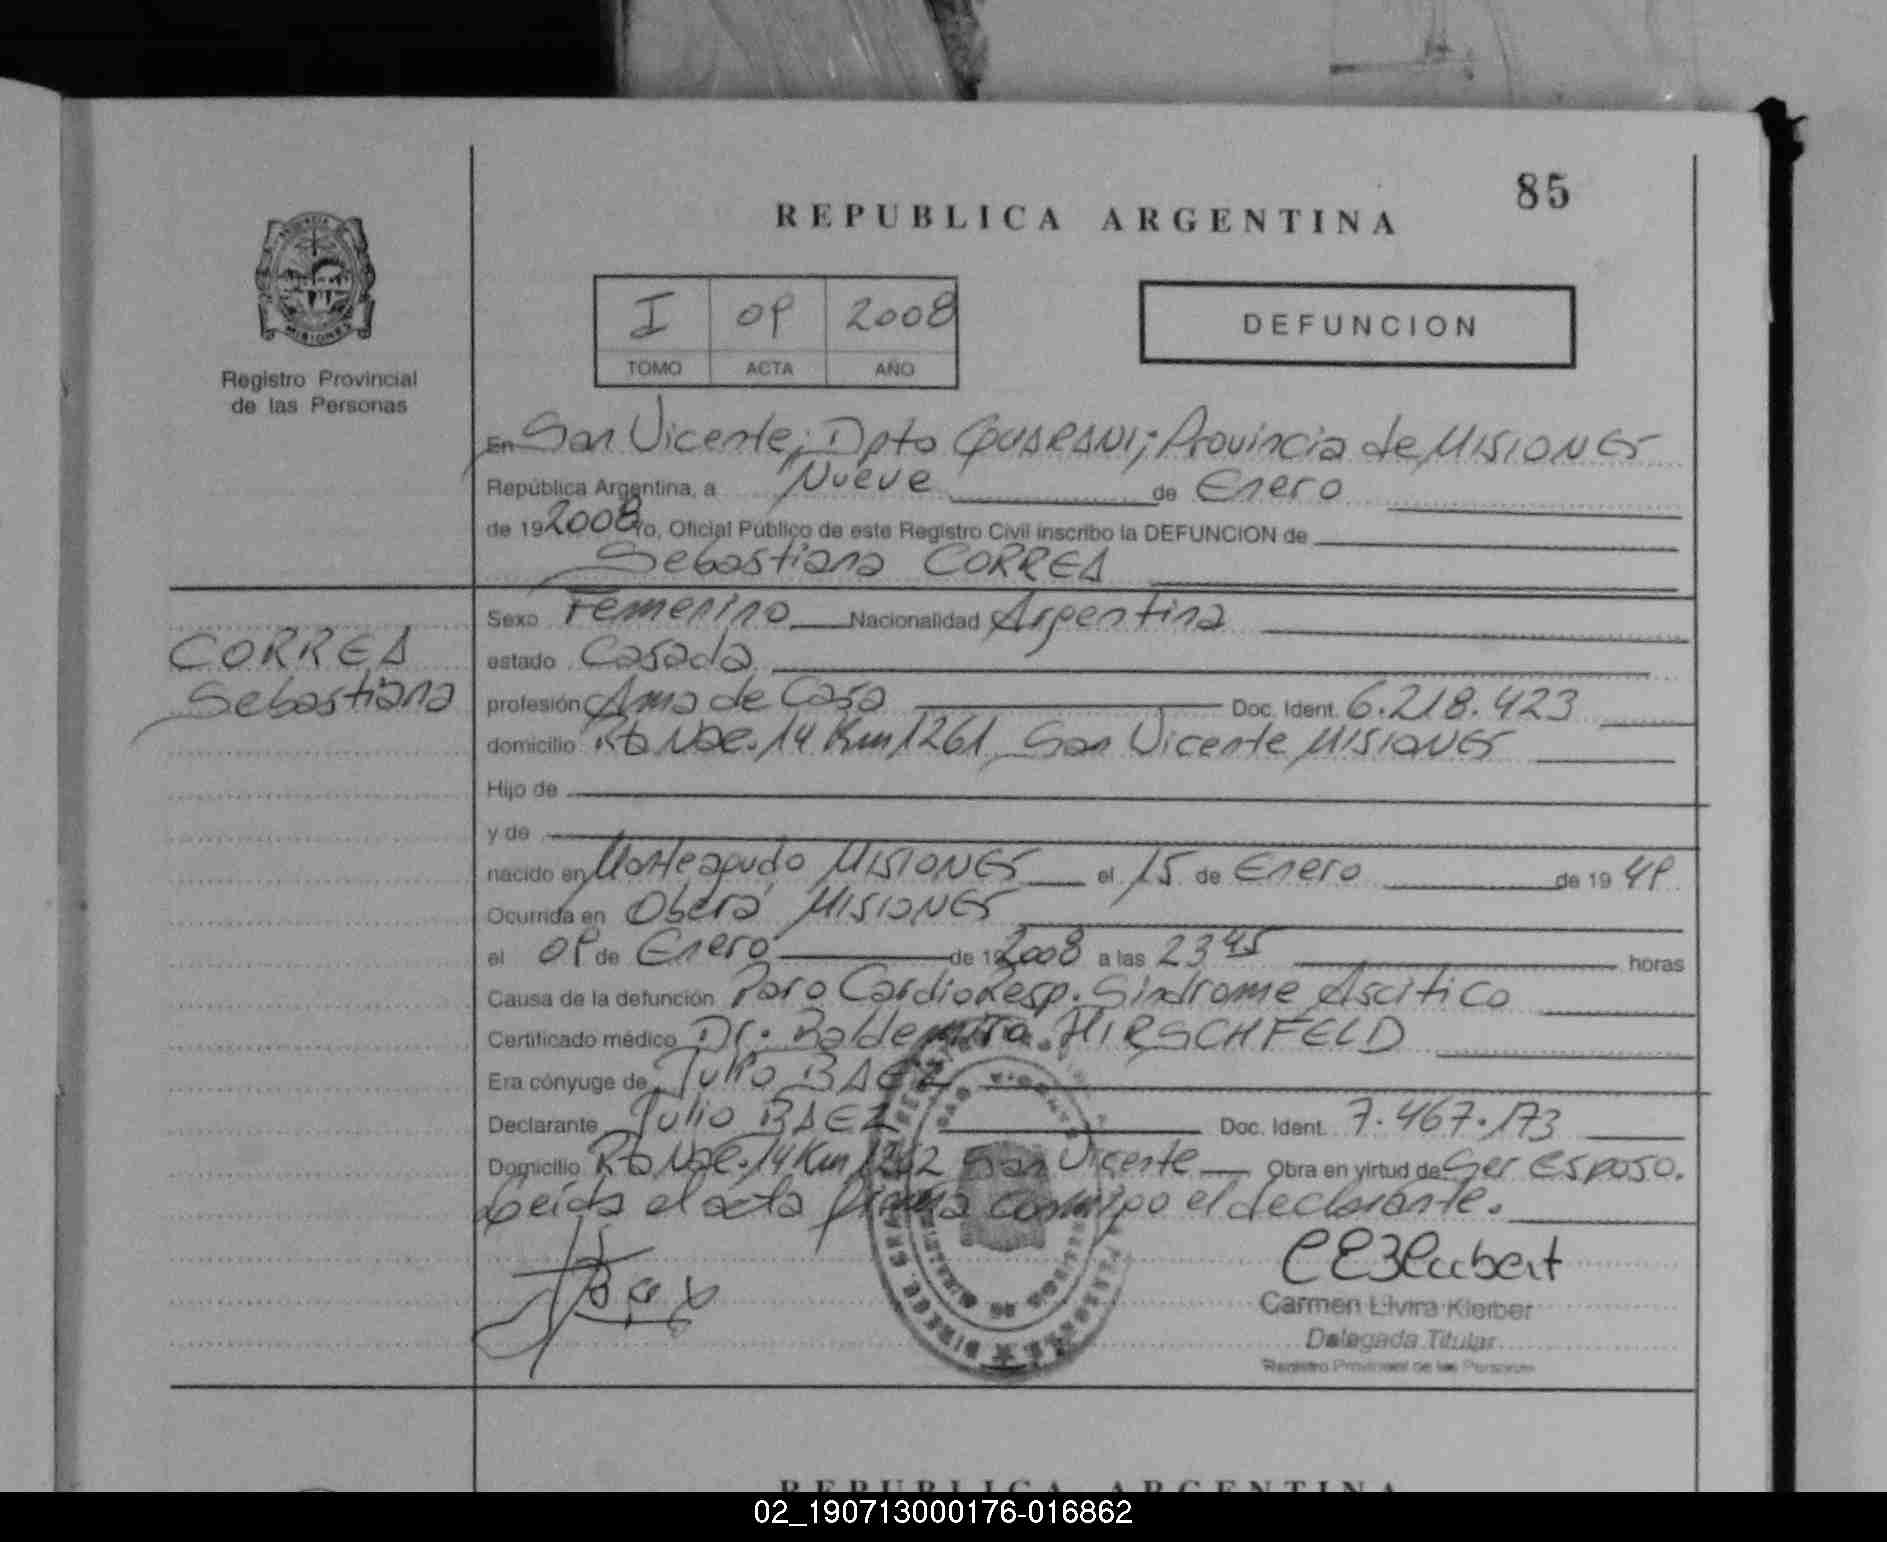 85
REPUBLICA ARGENTINA
I 09 2008
TOMO ACTA AÑO
DEFUNCION
MISIONES
Registro Provincial
de las Personas
En San Vicente; Dpto GUARANI; Provincia de MISIONES
República Argentina, a Nueve de Enero
de 19 2008 Yo, Oficial Público de este Registro Civil inscribo la DEFUNCION de
Sebastiana CORREA
CORREA
Sebastiana
Sexo Femenino Nacionalidad Argentina
estado Casada
profesión Ama de Casa Doc. Ident. 6.218.423
domicilio Rta Nac. 14 Km 1261 San Vicente MISIONES
Hijo de
y de
nacido en Monteagudo MISIONES el 15 de Enero de 19 49
Ocurrida en Oberá MISIONES
el 09 de Enero de 19 2008 a las 23 45 horas
Causa de la defunción Paro CardioResp. Sindrome Ascitico
Certificado médico Dr. HIRSCHFELD
Era cónyuge de Julio BAEZ
Declarante Julio BAEZ Doc. Ident. 7.467.173
Domicilio Rta Nac. 14 Km San Vicente Obra en virtud de Ser esposo.
Leida el acta firma conmigo el declarante.
Carmen Elvira Kleiber
Delegada Titular
Registro Provincial de las Personas
REPUBLICA ARGENTINA
02_190713000176-016862